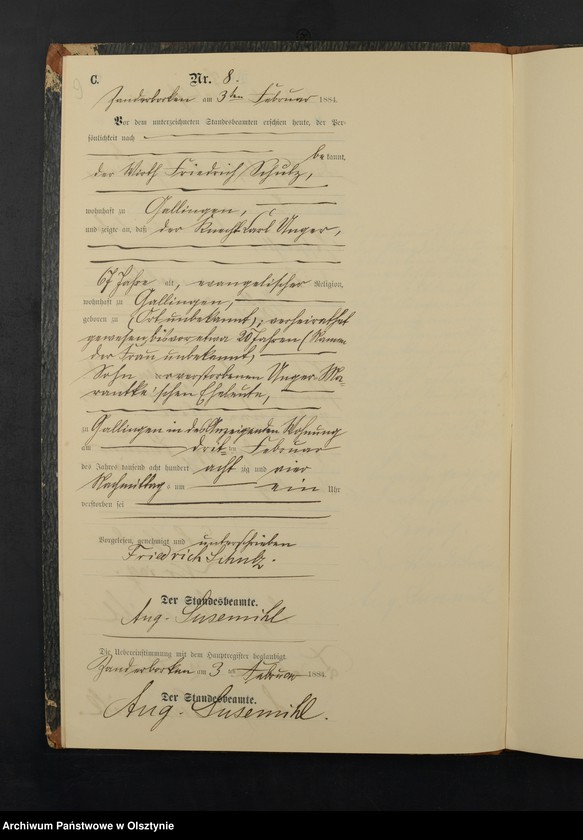 C.
Nr. 8.
am 3ten Februar 1884.
Vor dem unterzeichneten Standesbeamten erschien heute, der Per-
sönlichkeit nach
be kannt,
der Wirth Friedrich Schulz,
wohnhaft zu Gallingen,
und zeigte an, daß der Knecht Carl Unger,
67 Jahre alt, evangelischer Religion,
wohnhaft zu Gallingen,
geboren zu (Ort unbekannt), verheirathet
gewesen bis vor etwa 20 Jahren (Namen
der Frau unbekannt)
Sohn der verstorbenen Unger-
schen Eheleute,
zu Gallingen in des Anzeigenden Wohnung
am drei ten Februar
des Jahres tausend acht hundert acht zig und vier
Nachmittag s um ein Uhr
verstorben sei
Vorgelesen, genehmigt und unterschrieben
Friedrich Schulz.
Der Standesbeamte.
Aug. Susemihl
Die Uebereinstimmung mit dem Hauptregister beglaubigt.
am 3 ten Februar 1884.
Der Standesbeamte.
Aug. Susemihl.
Archiwum Państwowe w Olsztynie